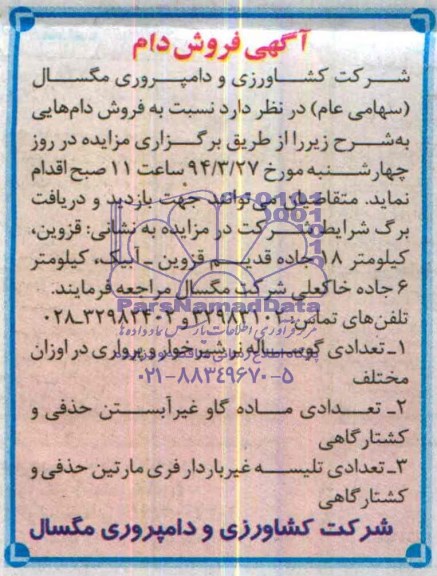 آگهی فروش دام
شرکت کشاورزی و دامپروری مگسال
(سهامی عام) در نظر دارد نسبت به فروش دام‌هایی
به‌شرح زیر را از طریق برگزاری مزایده در روز
چهارشنبه مورخ ۹۴/۳/۲۷ ساعت ۱۱ صبح اقدام
نماید. متقاضیان می‌توانند جهت بازدید و دریافت
برگ شرایط شرکت در مزایده به نشانی: قزوین،
کیلومتر ۱۸ جاده قدیم قزوین ـ آبیک، کیلومتر
۶ جاده خاکعلی شرکت مگسال مراجعه فرمایند.
ParsNamadData
تلفن‌های تماس:
۱ـ تعدادی گوساله نر شیرخوار و پرواری در اوزان
مختلف
۰۲۱-۸۸۳۴۹۶۷۰-۵
۲ـ تعدادی ماده گاو غیرآبستن حذفی و
کشتارگاهی
۳ـ تعدادی تلیسه غیرباردار فری مارتین حذفی و
کشتارگاهی
شرکت کشاورزی و دامپروری مگسال